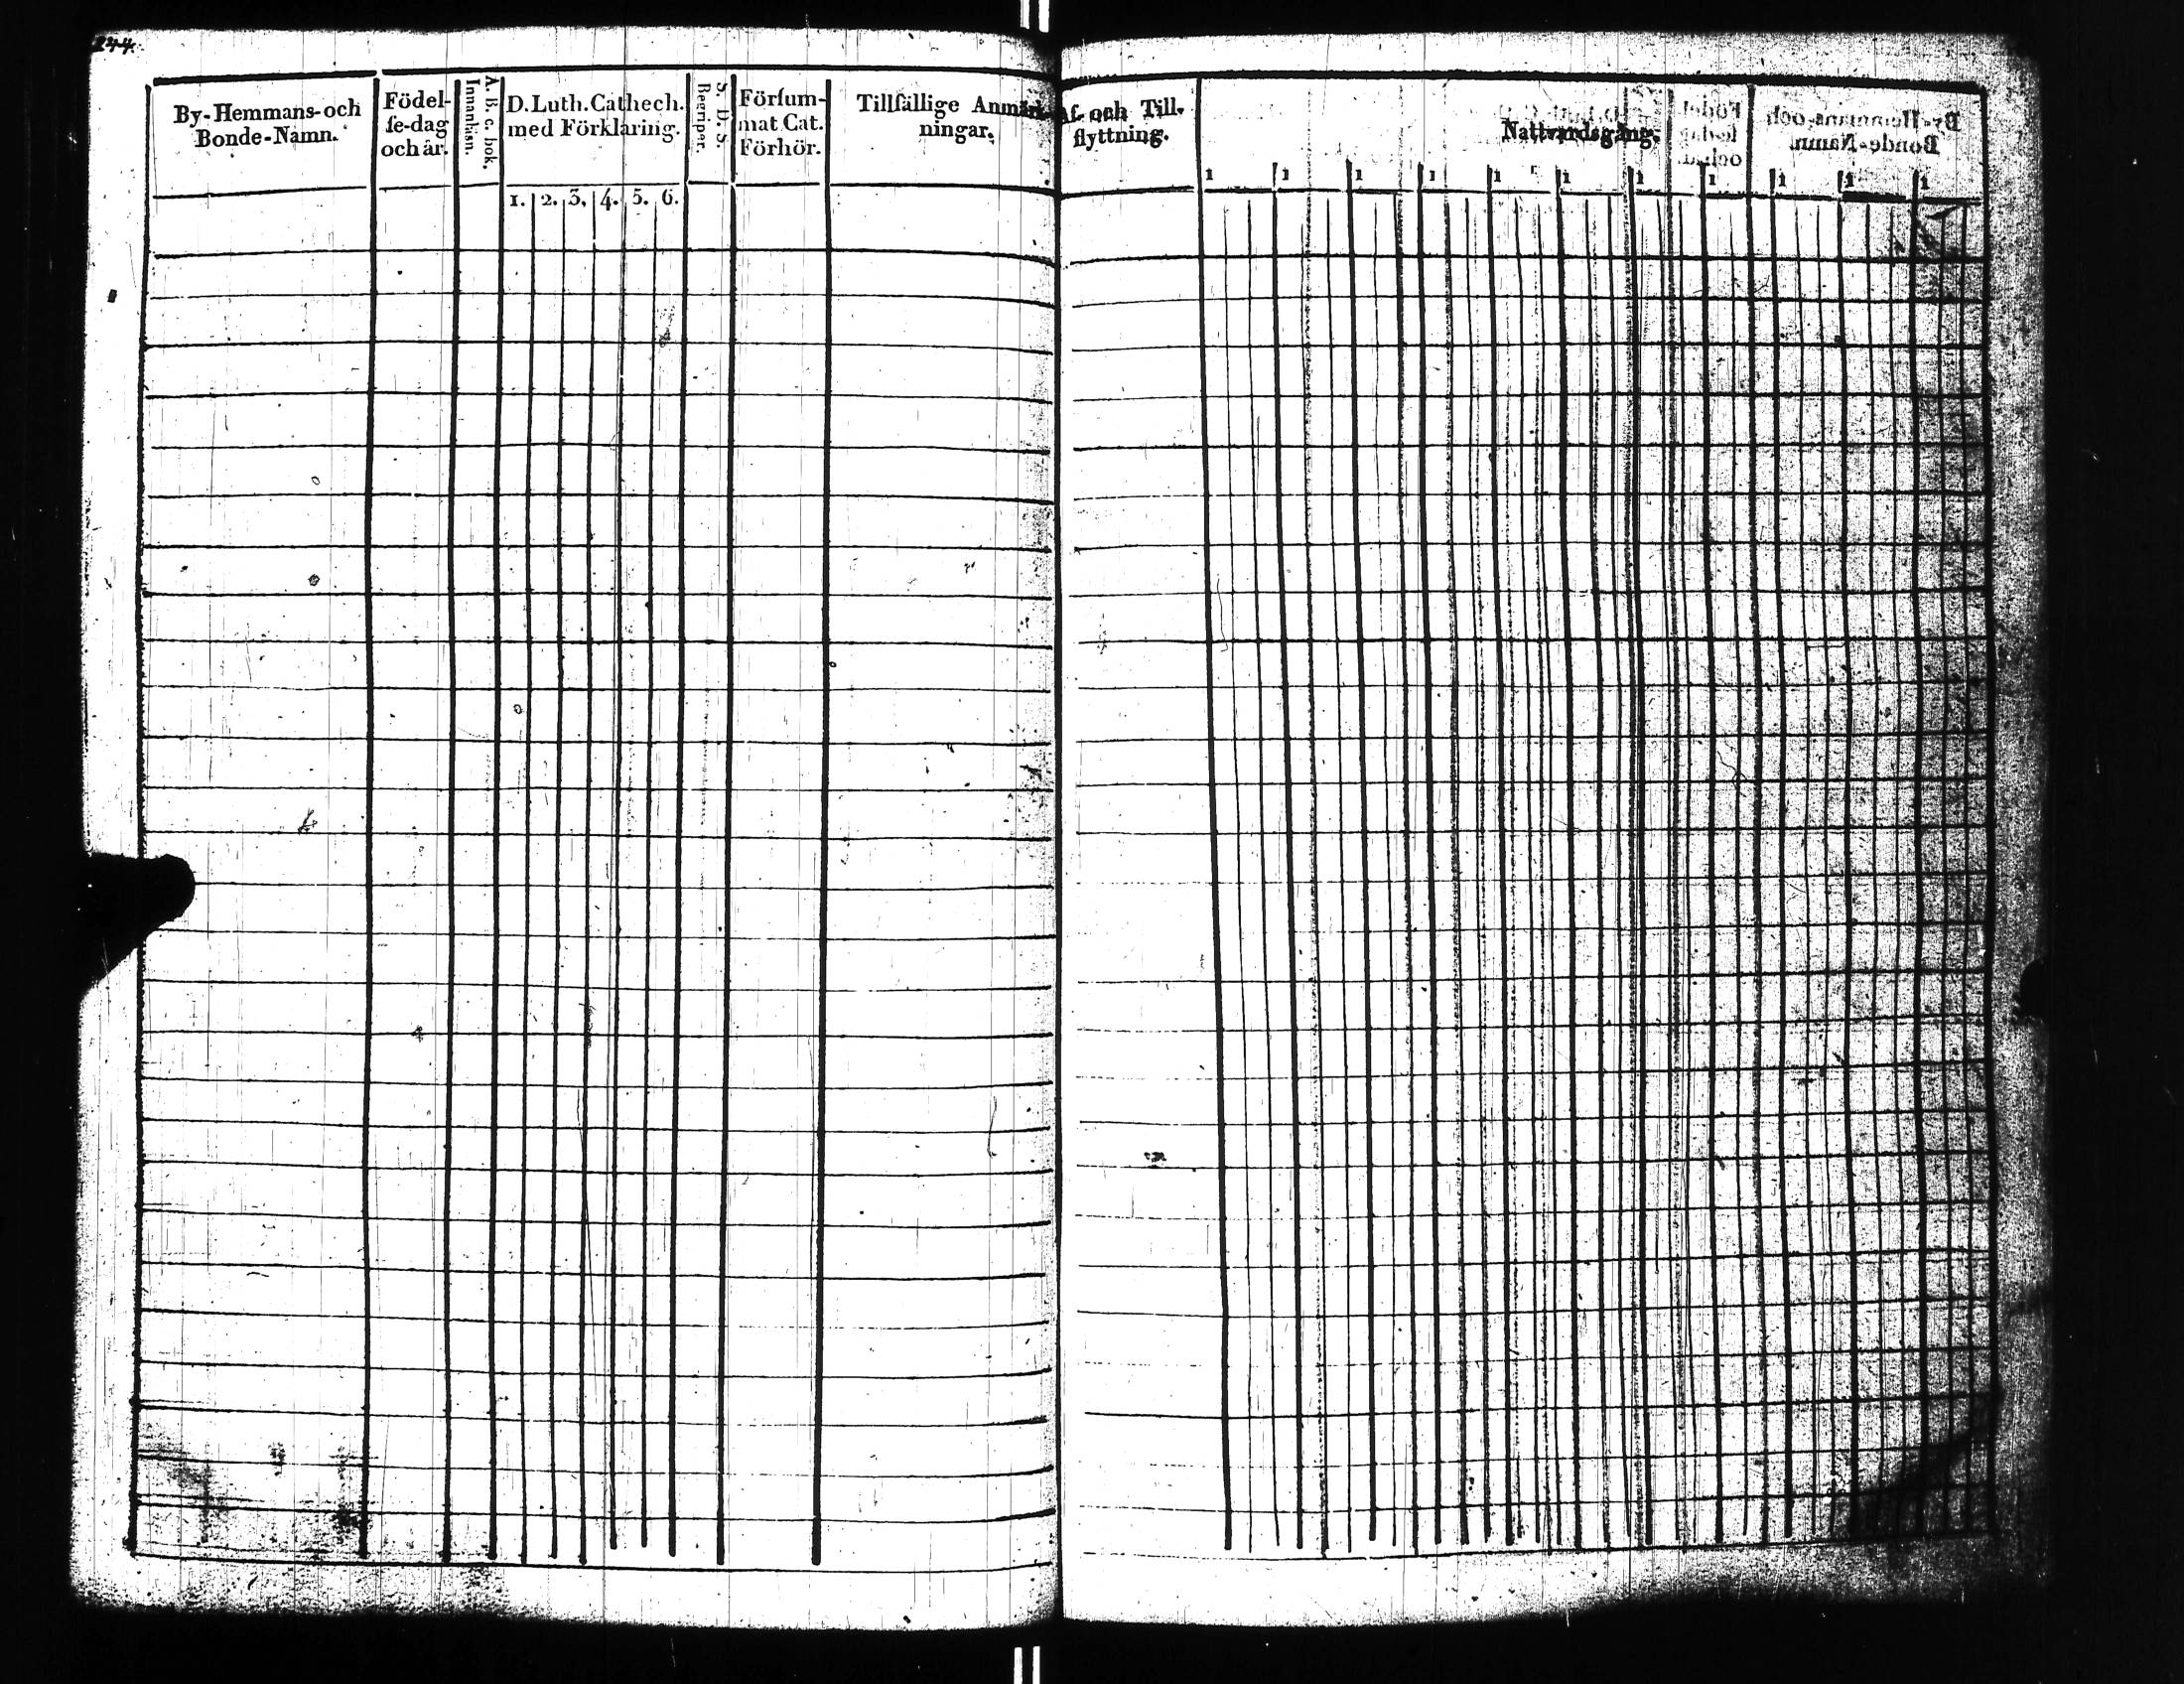 244.
By-Hemmans-och
Bonde-Namn.
Födel-
ſe-dag
och år.
A. B. c. bok.
Innanläsn.
D. Luth. Cathech.
med Förklaring.
1. 2. 3. 4. 5. 6.
S. D. S.
Begriper.
Förſum-
mat Cat.
Förhör.
Tillfällige Anmärk-
ningar.
Af- och Till-
flyttning.
Nattvardsgång.
1 1 1 1 1 1 1 1 1 1 1